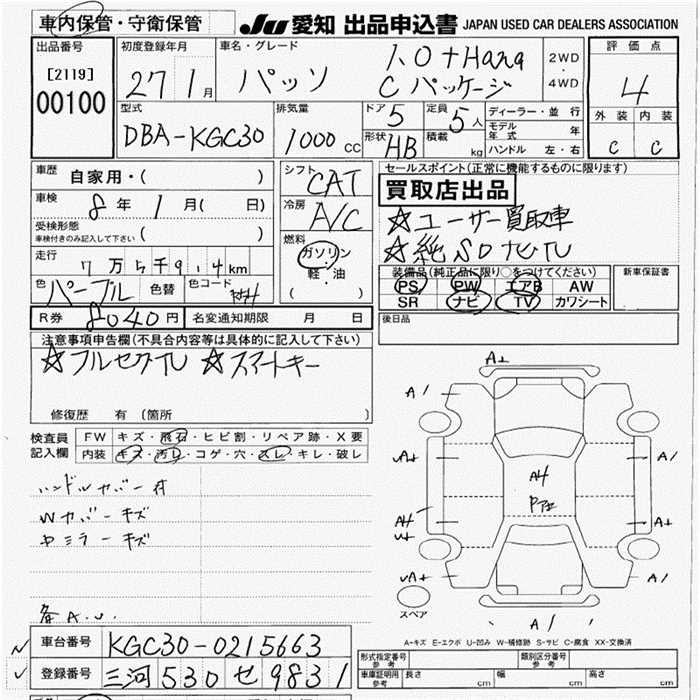 車内保管・守衛保管
JU 愛知 出品申込書 JAPAN USED CAR DEALERS ASSOCIATION
出品番号
[2119]
00100
初度登録年月
27 1月
車名・グレード
パッソ
1.0 +Hana
Cパッケージ
2WD
・
4WD
評価点
4
外装 内装
C C
型式
DBA-KGC30
排気量
1000 CC
ドア 5
定員 5人
形状 HB
積載 kg
ディーラー・並行
モデル年式 年
ハンドル 左・右
車歴 自家用・( )
車検 8年 1月( 日)
受検形態
車検付きのみ記入して下さい ( )
走行 7万5千9.4km
色 パープル 色替 色コード
シフト
CAT
冷房
A/C
燃料
ガソリン
軽・油
( )
セールスポイント(正常に機能するものに限ります)
買取店出品
☆ユーザー買取車
☆純SDナビTV
装備品(純正品に限り○をつけてください)
PS PW エアB AW
SR ナビ TV カワシート
新車保証書
R券 8040円 名変通知期限 月 日
後日品
注意事項申告欄(不具合内容等は具体的に記入して下さい)
☆フルセグTV ☆スマートキー
修復歴 有 (箇所 )
検査員記入欄
FW キズ・飛石・ヒビ割・リペア跡・X要
内装 キズ・汚レ・コゲ・穴・スレ・キレ・破レ
ハンドルカバー付
Wカバーキズ
Rミラーキズ
各A.U.
A±
A1
A1
UA±
A1
A4
Pﾂﾔ
A4
U±
A±
UA±
A1
A1
スペア
A-キズ E-エクボ U-凹み W-補修跡 S-サビ C-腐食 XX-交換済
車台番号 KGC30-0215663
登録番号 三河 530 せ 9831
形式指定番号 参考
類別区分番号 参考
車庫証明用 参考 長さ cm 幅 cm 高さ cm